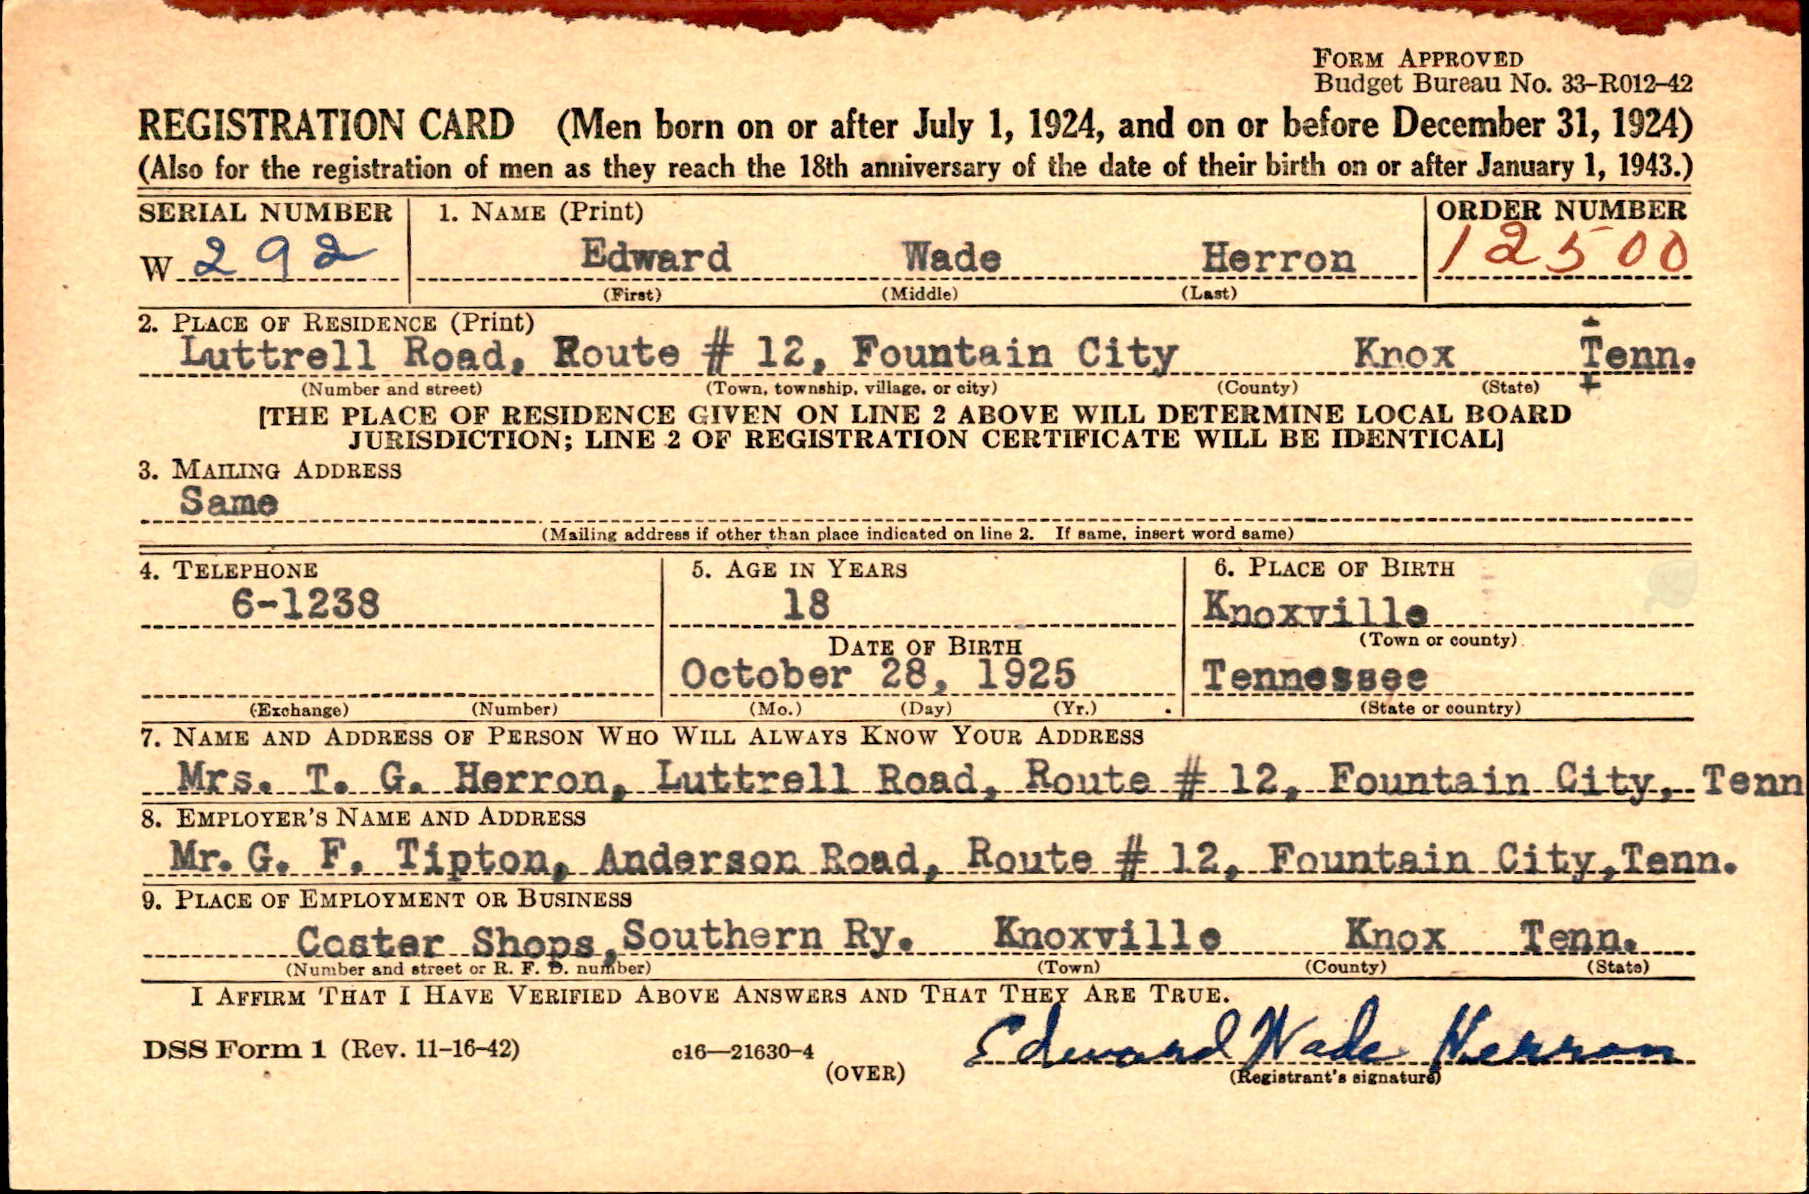 FORM APPROVED
Budget Bureau No. 33-R012-42
REGISTRATION CARD (Men born on or after July 1, 1924, and on or before December 31, 1924)
(Also for the registration of men as they reach the 18th anniversary of the date of their birth on or after January 1, 1943.)
SERIAL NUMBER 1. NAME (Print) ORDER NUMBER
W 292 Edward Wade Herron 12500
(First) (Middle) (Last)
2. PLACE OF RESIDENCE (Print)
Luttrell Road, Route # 12, Fountain City Knox Tenn.
(Number and street) (Town, township, village, or city) (County) (State)
[THE PLACE OF RESIDENCE GIVEN ON LINE 2 ABOVE WILL DETERMINE LOCAL BOARD
JURISDICTION; LINE 2 OF REGISTRATION CERTIFICATE WILL BE IDENTICAL]
3. MAILING ADDRESS
Same
(Mailing address if other than place indicated on line 2. If same, insert word same)
4. TELEPHONE 5. AGE IN YEARS 6. PLACE OF BIRTH
6-1238 18 Knoxville
DATE OF BIRTH (Town or county)
October 28, 1925 Tennessee
(Exchange) (Number) (Mo.) (Day) (Yr.) (State or country)
7. NAME AND ADDRESS OF PERSON WHO WILL ALWAYS KNOW YOUR ADDRESS
Mrs. T. G. Herron, Luttrell Road, Route # 12, Fountain City, Tenn
8. EMPLOYER'S NAME AND ADDRESS
Mr. G. F. Tipton, Anderson Road, Route # 12, Fountain City, Tenn.
9. PLACE OF EMPLOYMENT OR BUSINESS
Coster Shops, Southern Ry. Knoxville Knox Tenn.
(Number and street or R. F. D. number) (Town) (County) (State)
I AFFIRM THAT I HAVE VERIFIED ABOVE ANSWERS AND THAT THEY ARE TRUE.
DSS Form 1 (Rev. 11-16-42) c16—21630-4 Edward Wade Herron
(OVER) (Registrant's signature)